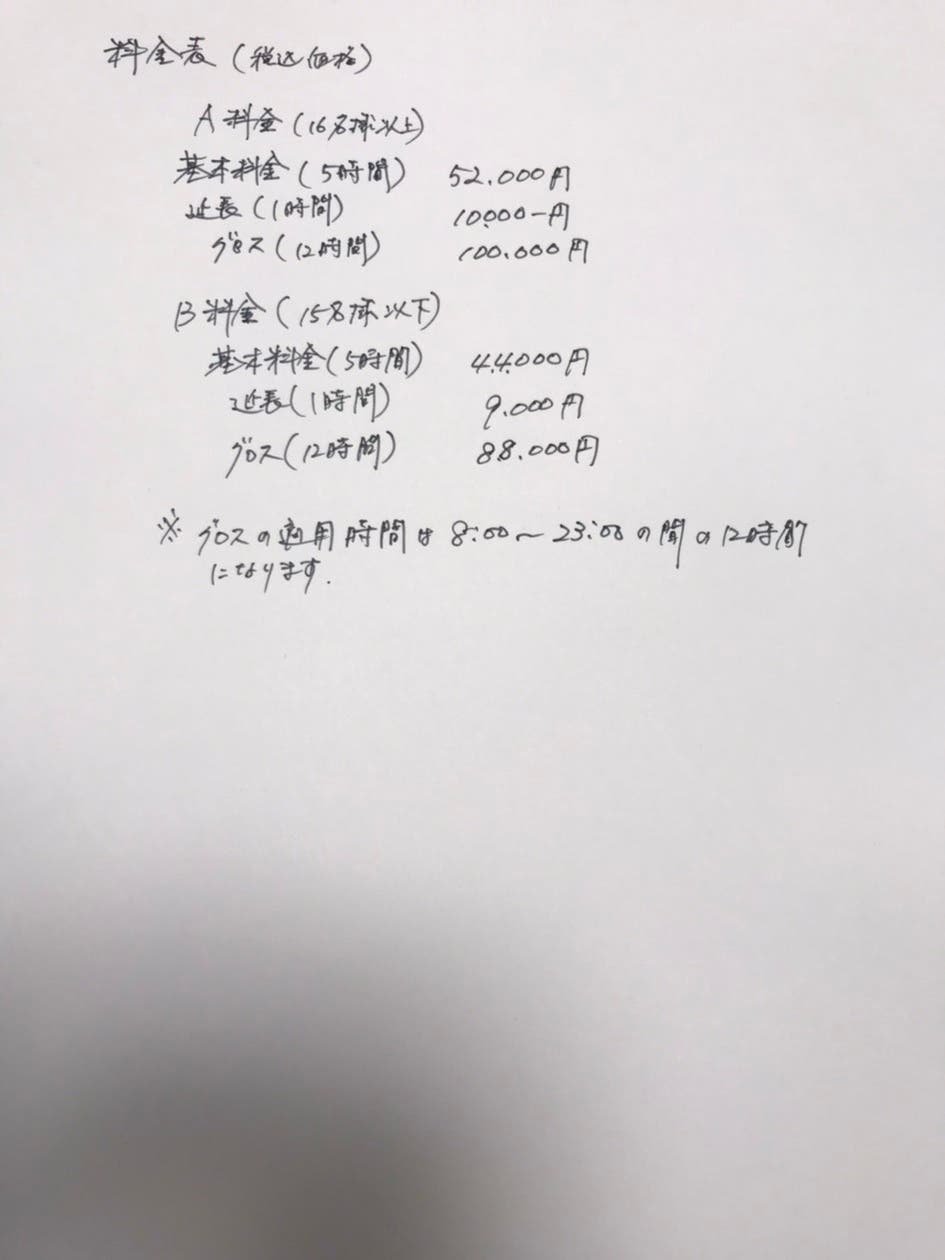 料金表(税込価格)
A料金(16名様以上)
基本料金(5時間) 52.000円
延長(1時間) 10.000-円
グロス(12時間) 100.000円
B料金(15名様以下)
基本料金(5時間) 44.000円
延長(1時間) 9.000円
グロス(12時間) 88.000円
※ グロスの適用時間は8:00〜23:00の間の12時間
になります.